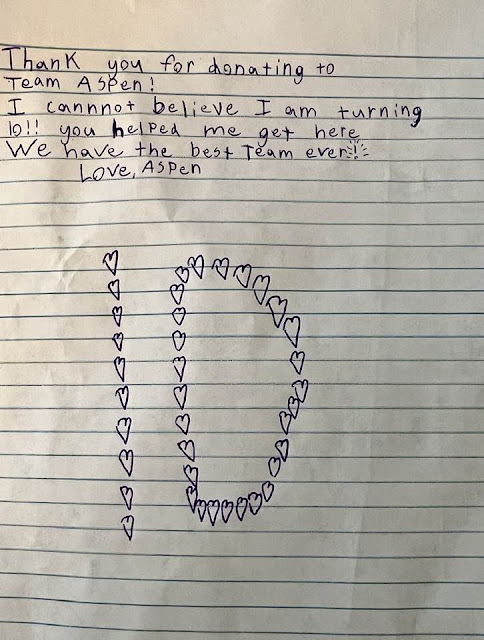 Thank you for donating to
Team Aspen!
I cannnot believe I am turning
10!! you helped me get here
We have the best Team ever!
Love, Aspen